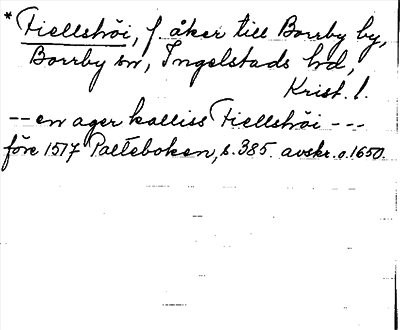 * Fiellshöi, f. åker till Borrby by,
Borrby sn, Ingelstads hd,
Krist. l.
-- en ager kalliss Fiellshöi ---
före 1517 Palteboken, s. 385. avskr. o. 1650.